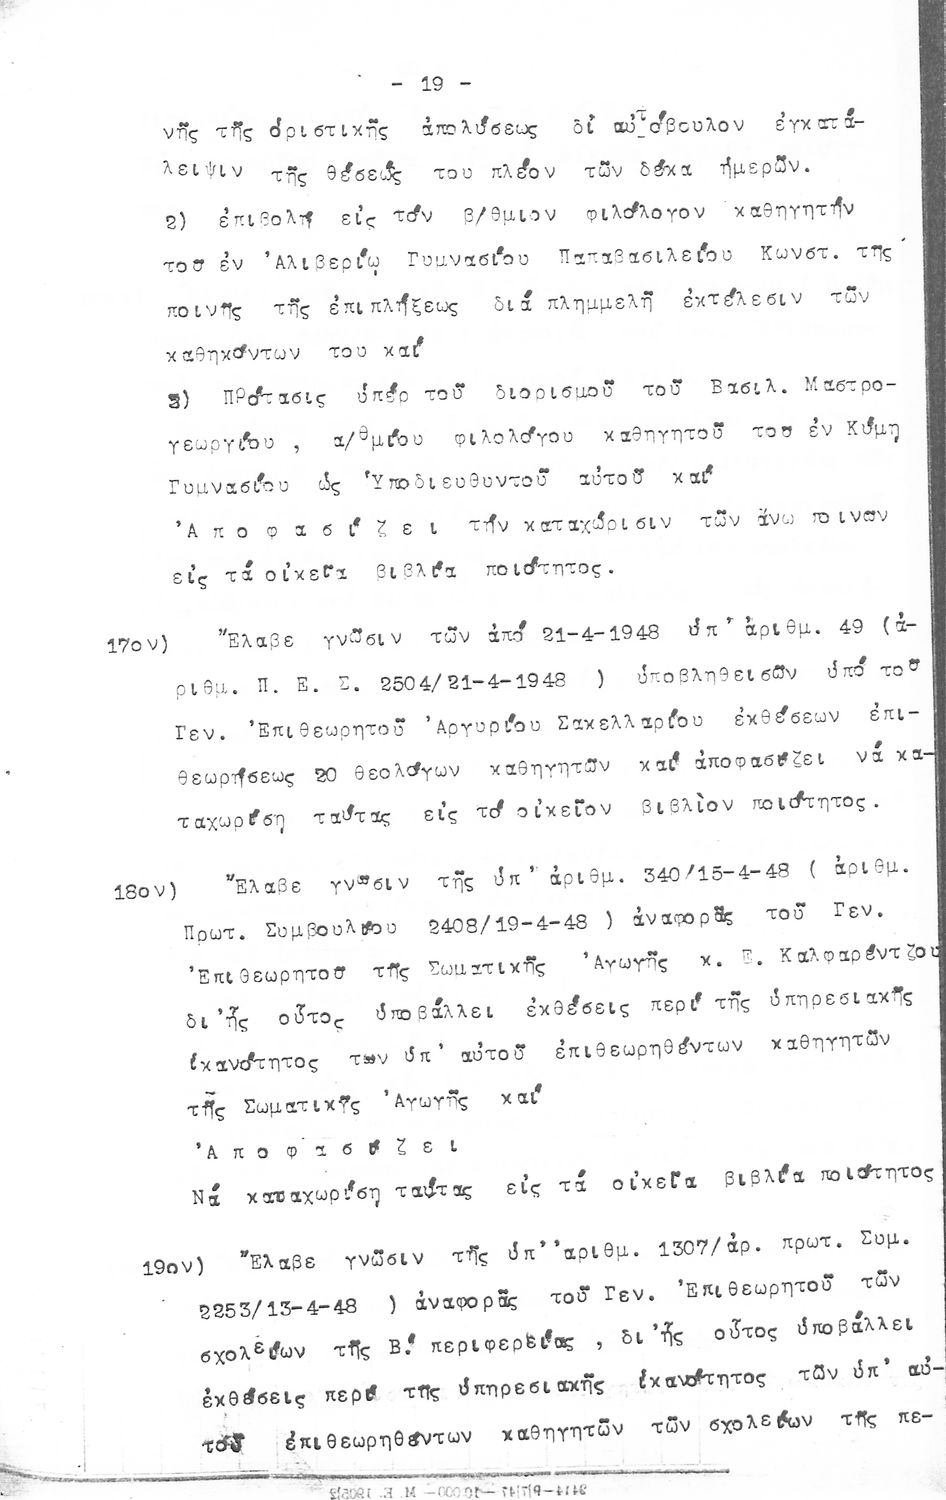 - 19 -
νῆς τῆς ὁριστικῆς ἀπολύσεως δι' αὐτόβουλον ἐγκατά-
λειψιν τῆς θέσεώς του πλέον τῶν δέκα ἡμερῶν.
2) ἐπιβολή εἰς τόν β/θμιον φιλόλογον καθηγητήν
τοῦ ἐν Ἀλιβερίῳ Γυμνασίου Παπαβασιλείου Κωνστ. τῆς
ποινῆς τῆς ἐπιπλήξεως διά πλημμελῆ ἐκτέλεσιν τῶν
καθηκόντων του καί
3) Πρότασις ὑπέρ τοῦ διορισμοῦ τοῦ Βασιλ. Μαστρο-
γεωργίου, α/θμίου φιλολόγου καθηγητοῦ τοῦ ἐν Κύμῃ
Γυμνασίου ὡς Ὑποδιευθυντοῦ αὐτοῦ καί
Ἀ π ο φ α σ ί ζ ε ι τήν καταχώρισιν τῶν ἄνω ποινῶν
εἰς τά οἰκεῖα βιβλία ποιότητος.
17ον) Ἔλαβε γνῶσιν τῶν ἀπό 21-4-1948 ὑπ' ἀριθμ. 49 (ἀ-
ριθμ. Π. Ε. Σ. 2504/21-4-1948 ) ὑποβληθεισῶν ὑπό τοῦ
Γεν. Ἐπιθεωρητοῦ Ἀργυρίου Σακελλαρίου ἐκθέσεων ἐπι-
θεωρήσεως 20 θεολόγων καθηγητῶν καί ἀποφασίζει νά κα-
ταχωρίσῃ ταύτας εἰς τό οἰκεῖον βιβλίον ποιότητος.
18ον) Ἔλαβε γνῶσιν τῆς ὑπ' ἀριθμ. 340/15-4-48 ( ἀριθμ.
Πρωτ. Συμβουλίου 2408/19-4-48 ) ἀναφορᾶς τοῦ Γεν.
Ἐπιθεωρητοῦ τῆς Σωματικῆς Ἀγωγῆς κ. Ε. Καλφαρέντζου
δι' ἧς οὗτος ὑποβάλλει ἐκθέσεις περί τῆς ὑπηρεσιακῆς
ἱκανότητος τῶν ὑπ' αὐτοῦ ἐπιθεωρηθέντων καθηγητῶν
τῆς Σωματικῆς Ἀγωγῆς καί
Ἀ π ο φ α σ ί ζ ε ι
Νά καταχωρίσῃ ταύτας εἰς τά οἰκεῖα βιβλία ποιότητος
19ον) Ἔλαβε γνῶσιν τῆς ὑπ' ἀριθμ. 1307/ἀρ. πρωτ. Συμ.
2253/13-4-48 ) ἀναφορᾶς τοῦ Γεν. Ἐπιθεωρητοῦ τῶν
σχολείων τῆς Β! περιφερείας, δι' ἧς οὗτος ὑποβάλλει
ἐκθέσεις περί τῆς ὑπηρεσιακῆς ἱκανότητος τῶν ὑπ' αὐ-
τοῦ ἐπιθεωρηθέντων καθηγητῶν τῶν σχολείων τῆς πε-